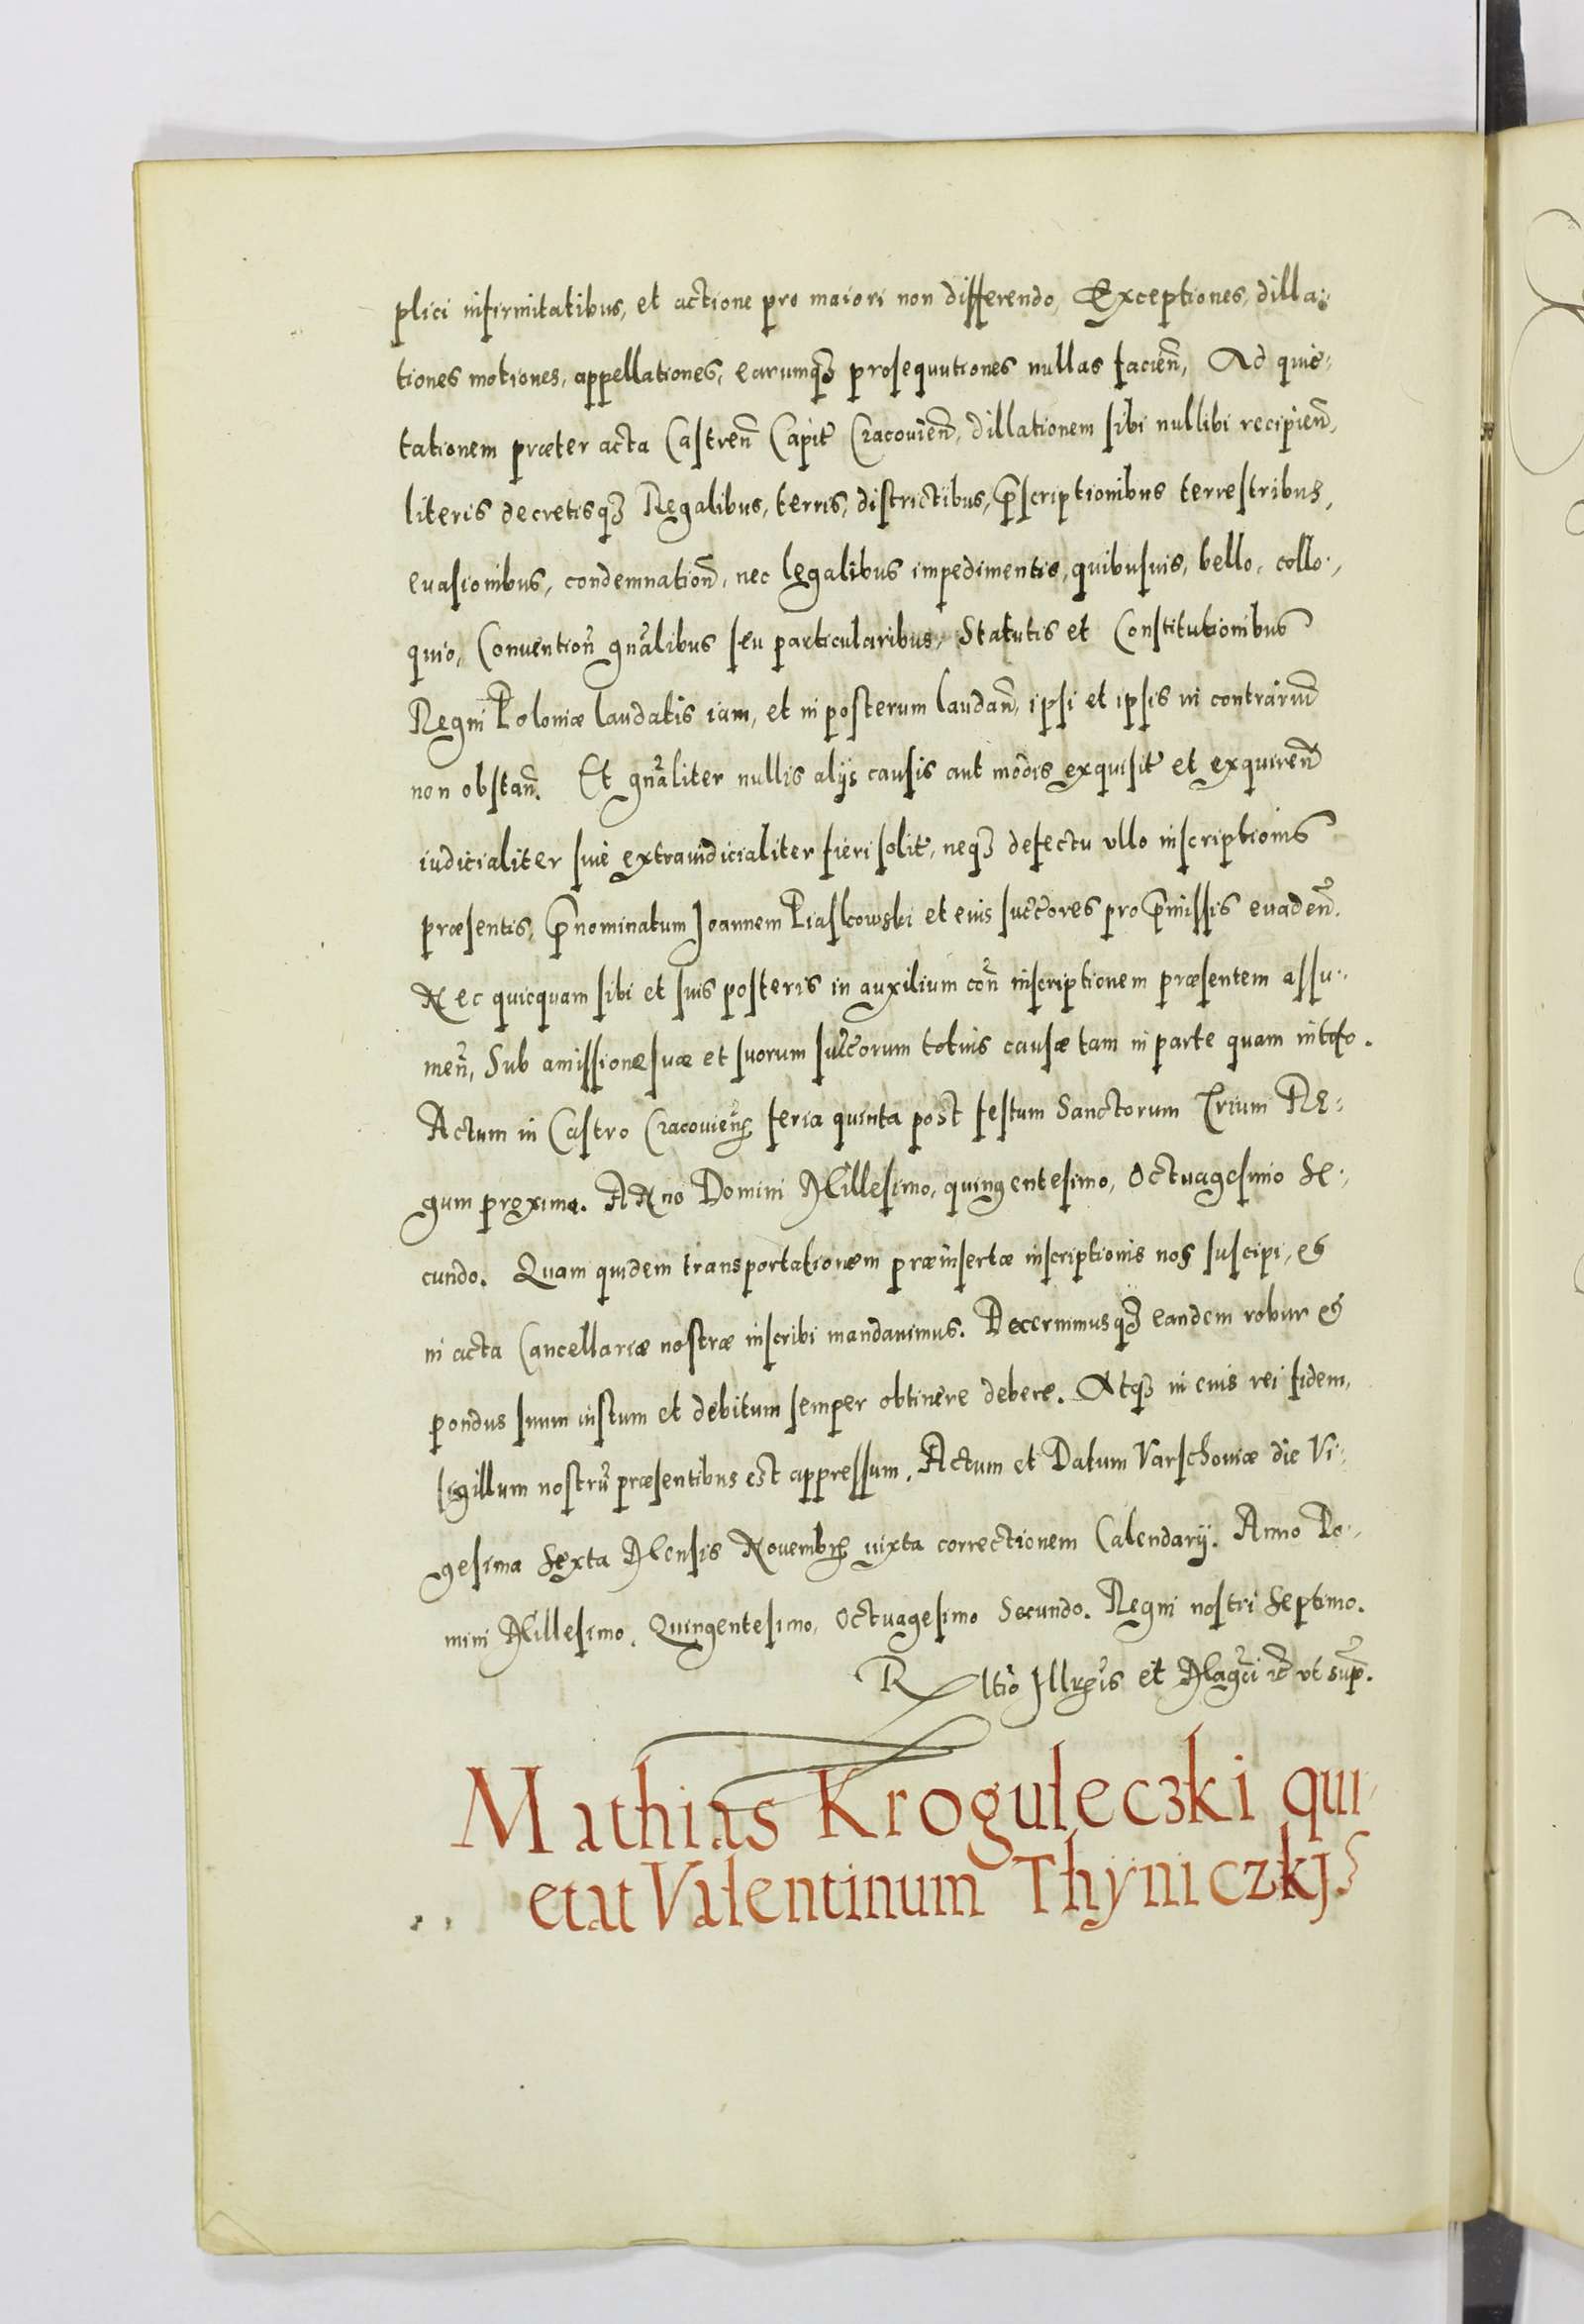 plici infirmitatibus, et actione pro maiori non differendo, Exceptiones, dilla-
tiones motiones, appellationes, earumqꝫ prosequutiones nullas facien̄, Ad quie-
tationem præter acta Castren̄ Capit̄ Cracouien̄, dillationem sibi nullibi recipien̄,
literis decretisqꝫ Regalibus, terris, districtibus, p̄scriptionibus terrestribus,
euasionibus, condemnation̄, nec legalibus impedimentis, quibusuis, bello, collo-
quio, Conuention̄ gn̄alibus seu particularibus, Statutis et Constitutionibus
Regni Poloniæ laudatis iam, et in posterum laudan̄, ipsi et ipsis in contrariū
non obstan̄. Et gn̄aliter nullis alijs causis aut modis exquisit̄ et exquiren̄
iudicialiter siue extraiudicialiter fieri solit̄, neqꝫ defectu ullo inscriptionis
præsentis, p̄nominatum Joannem Piaskowski et eius succ̄ores pro p̄missis euaden̄.
Nec quicquam sibi et suis posteris in auxilium con̄ inscriptionem præsentem assu-
men̄, Sub amissione suæ et suorum succ̄orum totius causæ tam in parte quam in toto.
Actum in Castro Cracouien̄ feria quinta post festum Sanctorum Trium Re-
gum proxima. Anno Domini Millesimo, quingentesimo, Octuagesimo Se-
cundo. Quam quidem transportationem præinsertæ inscriptionis nos suscipi, et
in acta Cancellariæ nostræ inscribi mandauimus. Decernimusqꝫ eandem robur et
pondus suum iustum et debitum semper obtinere debere. Atqꝫ in cuius rei fidem,
sigillum nostrū præsentibus est appressum. Actum et Datum Varschouiæ die Vi-
gesima Sexta Mensis Nouembris iuxta correctionem Calendarij. Anno Do-
mini Millesimo, Quingentesimo, Octuagesimo Secundo. Regni nostri Septimo.
Rltio Illris et Magci ꝛc̄ ut sup̄.
Mathias Kroguleczki qui-
etat Valentinum Thyniczkj.